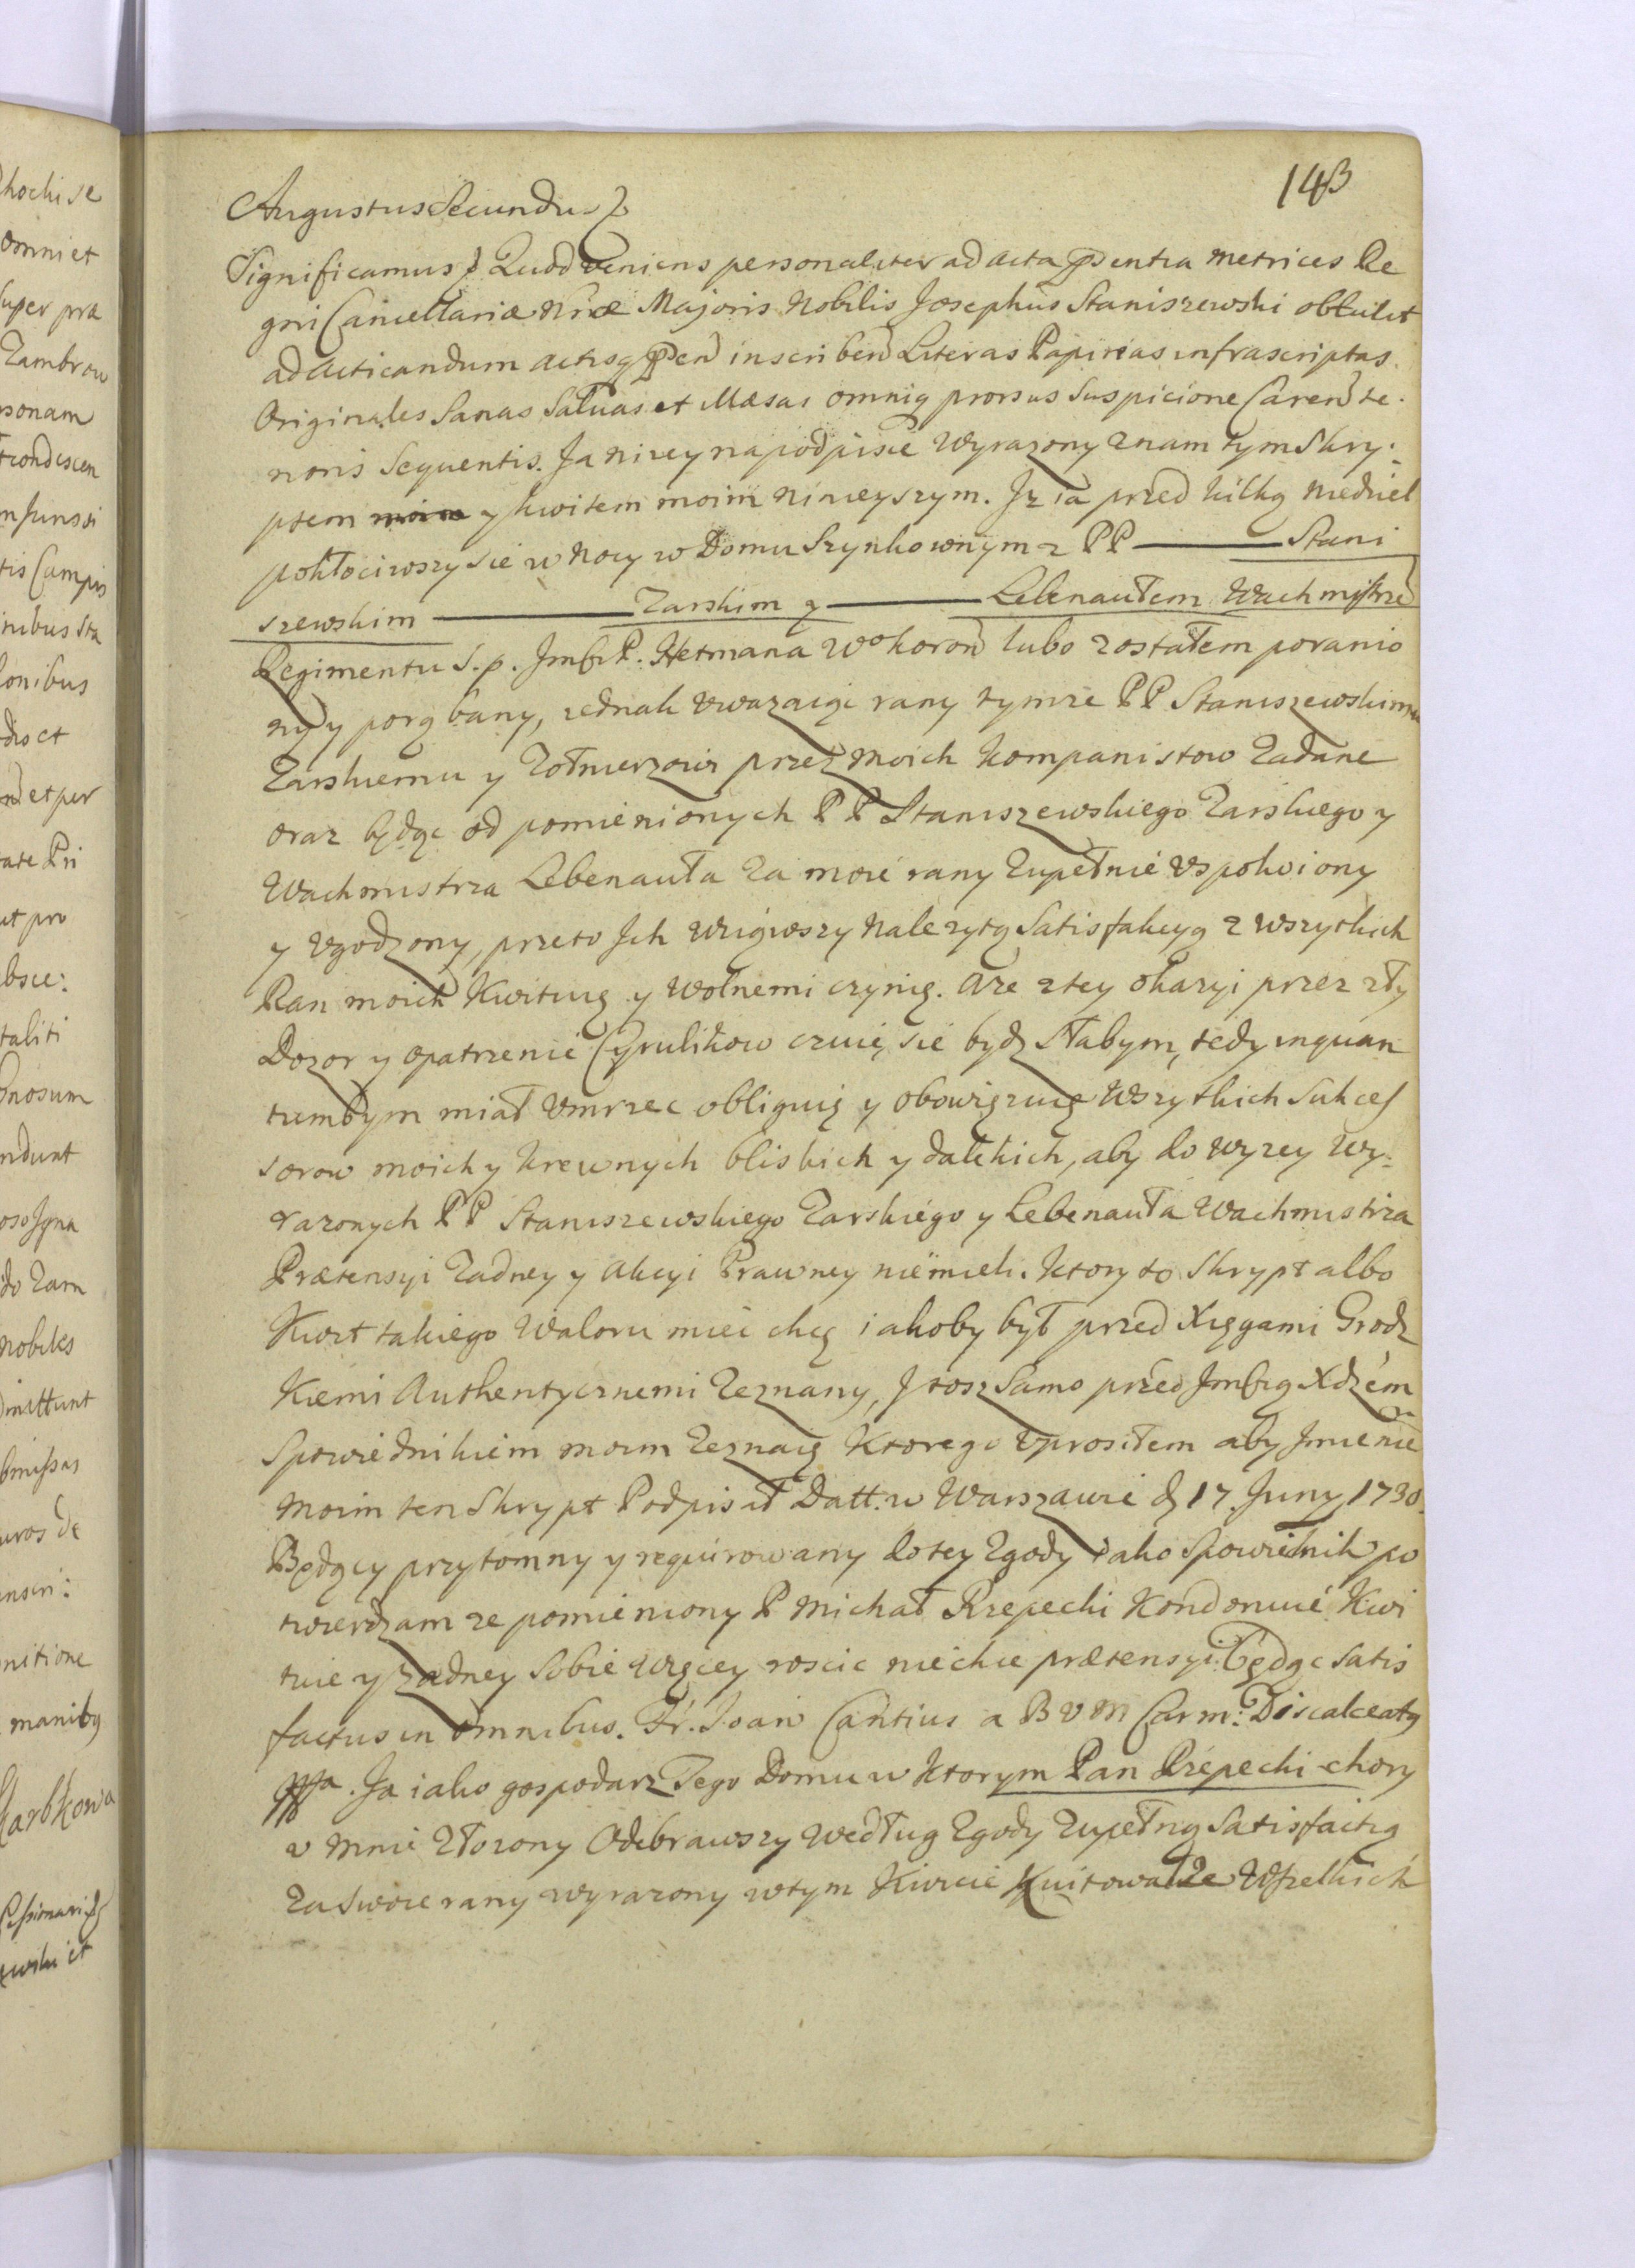 143
Augustus Secundus
Significamus Quod veniens personaliter ad acta pdsentia Metrices Re
gni Cancellariæ Nræ Majoris Nobilis Josephus Staniszewski obtulit
ad acticandum actisq pdsen inscriben Literas Papireas infrascriptas
Originales Sanas Salvas et Illæsas omniq prorsus Suspicione Caren te-
noris Sequentis. Ja nizey na podpisie Wyrazony znam tym Skry-
ptem y kwitem moim ninieyszym. Iz ia przed kilką niedziel
pokłociwszy sie w Nocy w Domu Szynkownym z PP ——— Stani
szewskim ——— Zarskim y ——— Lebenautem Wachmistrzē
Regimentu S. p. Jmści P. Hetmana Wo koron lubo zostałem poranio
ny y porąbany, iednak uwazaiąc rany tymze PP Staniszewskimu
Zarskiemu y Zołnierzowi przez moich Kompanistow Zadane
oraz będąc od pomienionych PP Staniszewskiego Zarskiego y
Wachmistrza Lebenauta za moie rany Zupełnie uspokoiony
y ugodzony, przeto Jch wziąwszy nalezytą Satisfakcyą z wszytkich
Ran moich Kwituię y wolnemi czynię. Aze z tey okazyi przez zły
Dozor y opatrzenie Cyrulikow czuię sie bydz słabym, tedy inquan
tumbym miał umrzec obliguię y obowięzuię Wszytkich Sukces
sorow moich y krewnych bliskich y dalekich, aby do wyzey wy-
razonych PP Staniszewskiego Zarskiego y Lebenauta Wachmistrza
Prætensyi Zadney y Akcyi Prawney niemieli. Ktory to Skrypt albo
Kwit takiego Waloru miec chcę iakoby był przed Xięgami Grodz
Kiemi Authentycznemi Zeznany, J tosz Samo przed Jmścią Xdzem
Spowiednikiem moim Zeznaię Ktorego uprosiłem aby Jmieniē
moim ten Skrypt Podpisał Datt. w Warszawie d 17 Juny 1730.
Będący przytomny y requirowany do tey Zgody iako Spowiednik po
twierdzam ze pomieniony P Michał Rzepecki Kondonuie Kwi
tuie y Zadney Sobie więcey roscic niechce prætensyi. Będąc satis
factus in omnibus. Fr. Joan Cantius a B V M Carm: Discalceatq
mppa. Ja iako gospodarz Tego Domu w ktorym Pan Rzepecki chory
u mnie złozony Odebrawszy według Zgody Zupełną Satisfactią
Za swoie rany wyrazony w tym Kwicie Kwitował ze Wszelkich